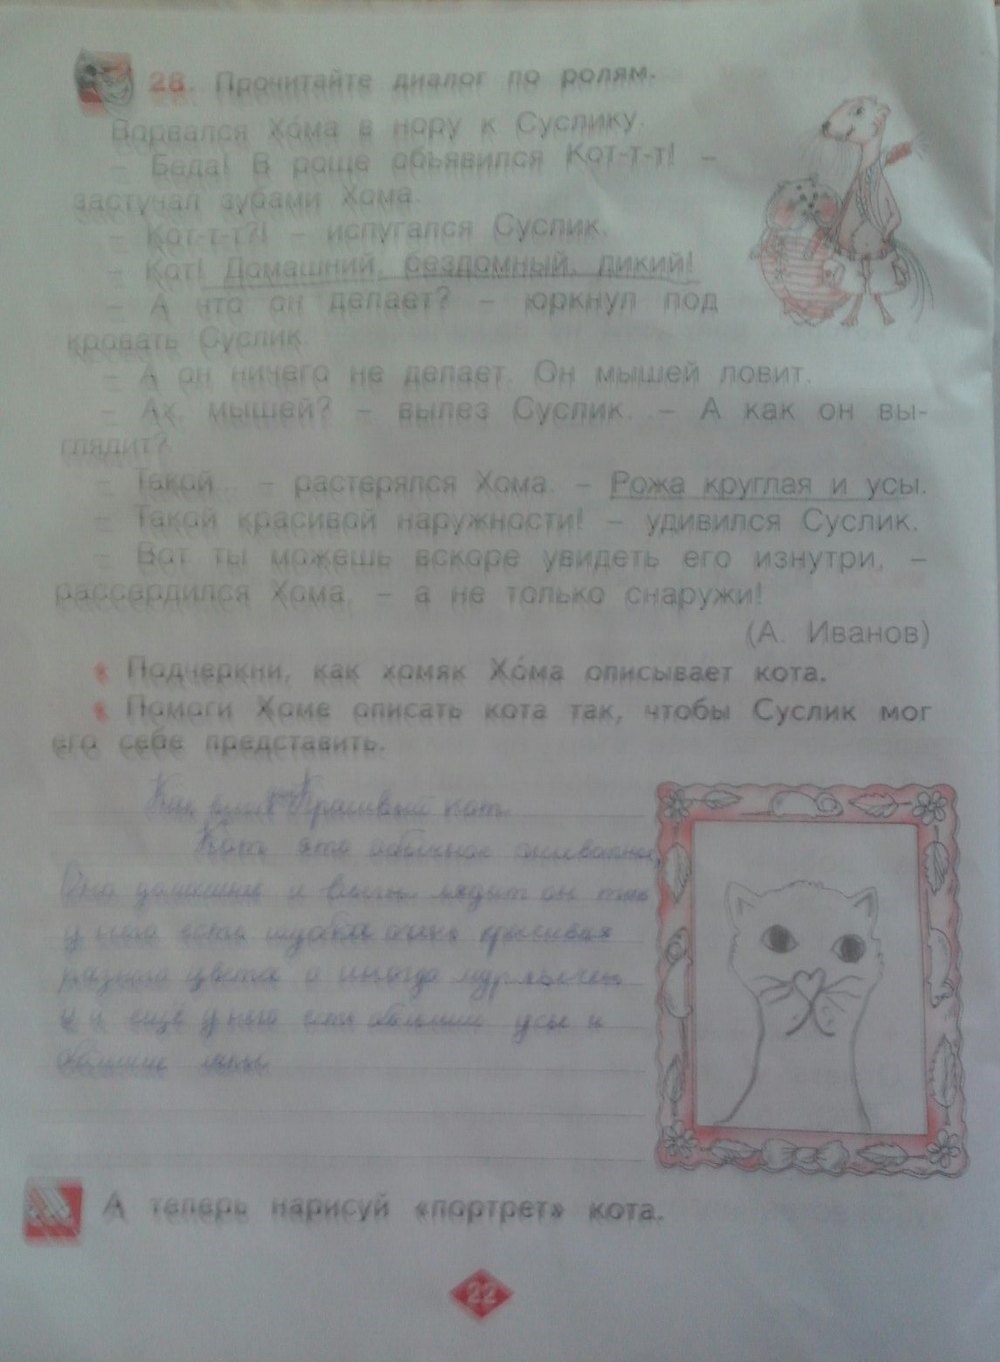 28. Прочитайте диалог по ролям.
Ворвался Хо́ма в нору к Суслику.
– Беда! В роще объявился Кот-т-т! –
застучал зубами Хома.
– Кот-т-т?! – испугался Суслик.
– Кот! Домашний, бездомный, дикий!
– А что он делает? – юркнул под
кровать Суслик.
– А он ничего не делает. Он мышей ловит.
– Ах, мышей? – вылез Суслик. – А как он вы-
глядит?
– Такой... – растерялся Хома. – Рожа круглая и усы.
– Такой красивой наружности! – удивился Суслик.
– Вот ты можешь вскоре увидеть его изнутри, –
рассердился Хома, – а не только снаружи!
(А. Иванов)
Подчеркни, как хомяк Хо́ма описывает кота.
Помоги Хоме описать кота так, чтобы Суслик мог
его себе представить.
Красивый кот.
Кот это обычное
домашнее и он
у него есть шубка очень красивая
разного цвета а иногда
и и ещё у него есть большие усы и
большие
А теперь нарисуй «портрет» кота.
22